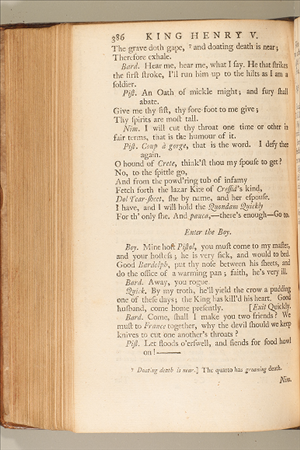 386 KING HENRY V.
The grave doth gape, ⁷ and doating death is near;
Therefore exhale.
Bard. Hear me, hear me, what I say. He that strikes
the first stroke, I'll run him up to the hilts as I am a
soldier.
Pist. An Oath of mickle might; and fury shall
abate.
Give me thy fist, thy fore-foot to me give;
Thy spirits are most tall.
Nim. I will cut thy throat one time or other in
fair terms, that is the humour of it.
Pist. Coup à gorge, that is the word. I defy thee
again.
O hound of Crete, think'st thou my spouse to get?
No, to the spittle go,
And from the powd'ring tub of infamy
Fetch forth the lazar Kite of Cressid's kind,
Dol Tear-sheet, she by name, and her espouse.
I have, and I will hold the Quondam Quickly
For th' only she. And pauca,—there's enough—Go to.
Enter the Boy.
Boy. Mine host Pistol, you must come to my master,
and your hostess; he is very sick, and would to bed.
Good Bardolph, put thy nose between his sheets, and
do the office of a warming pan; faith, he's very ill.
Bard. Away, you rogue.
Quick. By my troth, he'll yield the crow a pudding
one of these days; the King has kill'd his heart. Good
husband, come home presently. [Exit Quickly.
Bard. Come, shall I make you two friends? We
must to France together, why the devil should we keep
knives to cut one another's throats?
Pist. Let floods o'erswell, and fiends for food howl
on!———
⁷ Doating death is near.] The quarto has groaning death.
Nim.